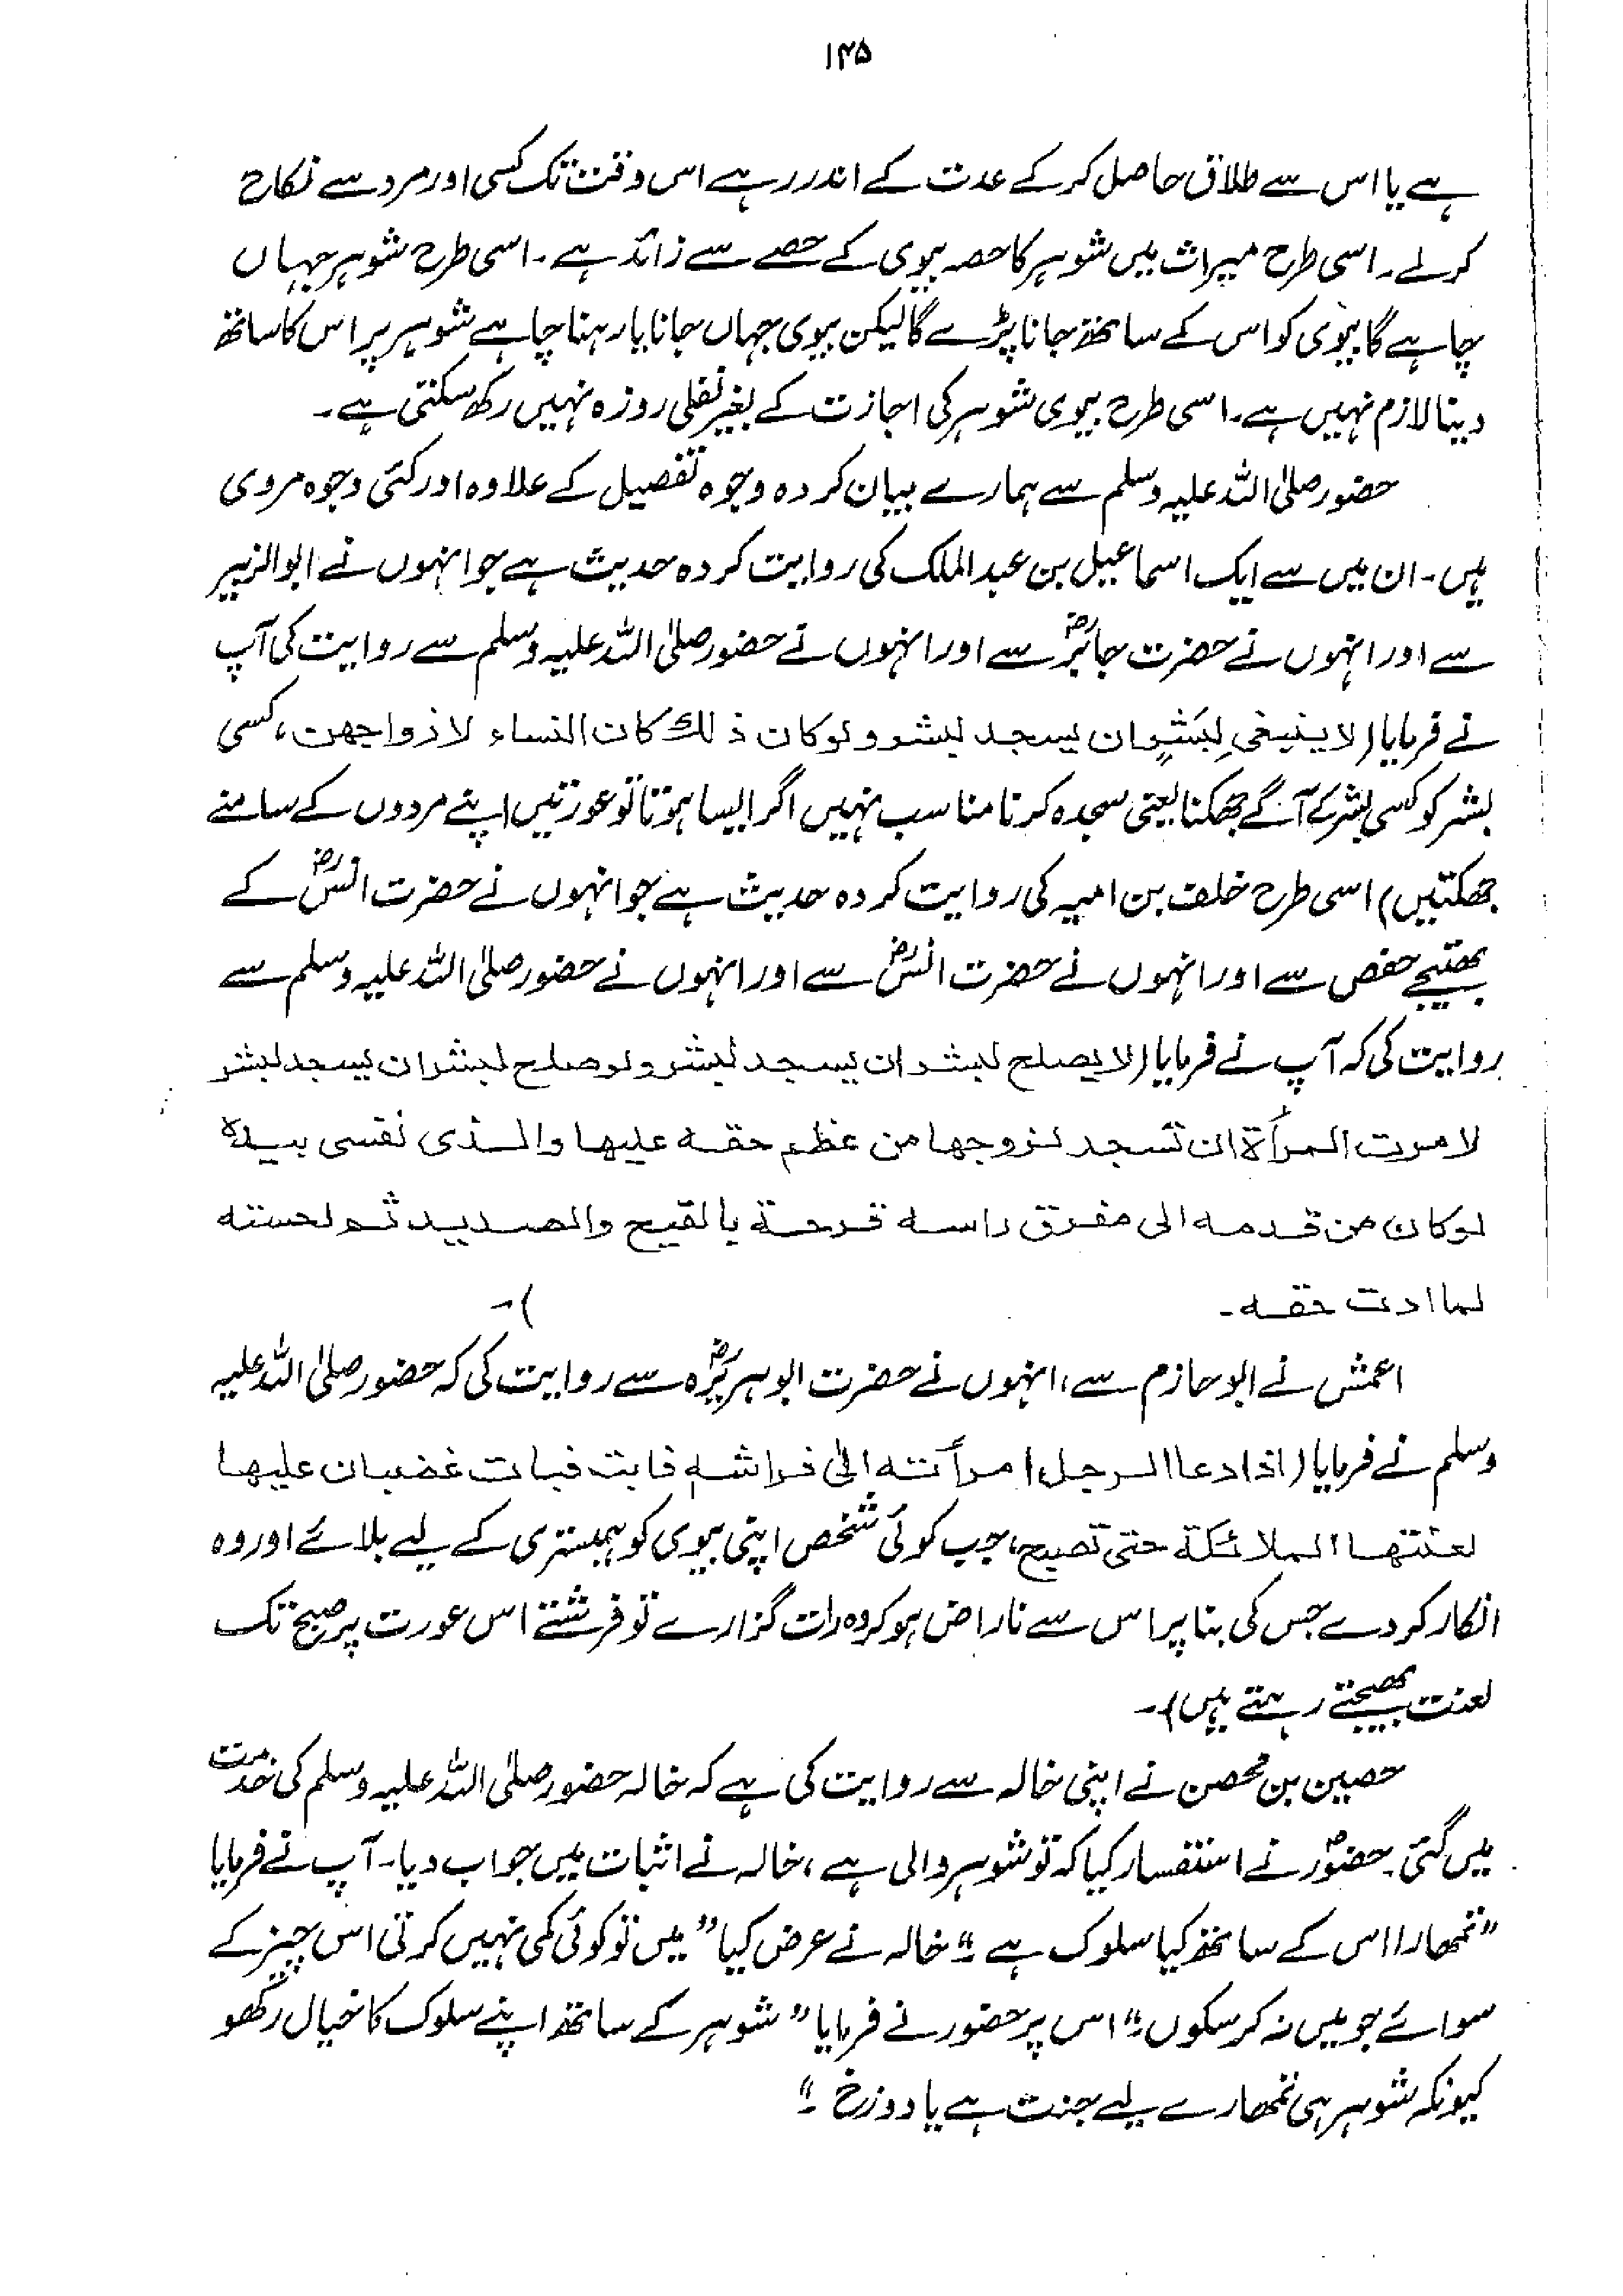 ۱۴۵
ہے یا اس سے طلاق حاصل کر کے عدت کے اندر رہے اس وقت تک کسی اور مرد سے نکاح
کرلے۔ اسی طرح میراث میں شوہر کا حصہ بیوی کے حصے سے زائد ہے۔ اسی طرح شوہر جہاں
چاہے گا بیوی کو اس کے ساتھ جانا پڑے گا لیکن بیوی جہاں جانا یا رہنا چاہے شوہر پر اس کا ساتھ
دینا لازم نہیں ہے۔ اسی طرح بیوی شوہر کی اجازت کے بغیر نفلی روزہ نہیں رکھ سکتی ہے۔
حضور صلی اللہ علیہ وسلم سے ہمارے بیان کردہ وجوہ تفصیل کے علاوہ اور کئی وجوہ مروی
ہیں۔ ان میں سے ایک اسماعیل بن عبد الملک کی روایت کردہ حدیث ہے جو انہوں نے ابوالزبیر
سے اور انہوں نے حضرت جابرؓ سے اور انہوں نے حضور صلی اللہ علیہ وسلم سے روایت کی آپ
نے فرمایا (لا ینبغی لِبَشَرٍ ان یسجد لبشر ولو کان ذلك کان النساء لازواجهن، کسی
بشر کو کسی بشر کے آگے جھکنا یعنی سجدہ کرنا مناسب نہیں اگر ایسا ہوتا تو عورتیں اپنے مردوں کے سامنے
جھکتیں) اسی طرح خلف بن امیہ کی روایت کردہ حدیث ہے جو انہوں نے حضرت انسؓ کے
بھتیجے حفص سے اور انہوں نے حضرت انسؓ سے اور انہوں نے حضور صلی اللہ علیہ وسلم سے
روایت کی کہ آپ نے فرمایا (لا یصلح لبشر ان یسجد لبشر ولو صلح لبشر ان یسجد لبشر
لامرت المرأة ان تسجد لزوجها من عظم حقه علیها والذی نفسی بیدہ
لو کان من قدمه الی مفرق راسه قرحة بالقیح والصدید ثم لحسته
لما ادت حقه۔ )۔
اعمش نے ابو حازم سے، انہوں نے حضرت ابوہریرہؓ سے روایت کی کہ حضور صلی اللہ علیہ
وسلم نے فرمایا (اذا دعا الرجل امرأته الیٰ فراشه فابت فبات غضبان علیها
لعنتها الملائکة حتی تصبح، جب کوئی شخص اپنی بیوی کو ہمبستری کے لیے بلائے اور وہ
انکار کر دے جس کی بنا پر اس سے ناراض ہو کر وہ رات گزارے تو فرشتے اس عورت پر صبح تک
لعنت بھیجتے رہتے ہیں)۔
حصین بن محصن نے اپنی خالہ سے روایت کی ہے کہ خالہ حضور صلی اللہ علیہ وسلم کی خدمت
میں گئی۔ حضورؐ نے استفسار کیا کہ تو شوہر والی ہے، خالہ نے اثبات میں جواب دیا۔ آپ نے فرمایا
”تمھارا اس کے ساتھ کیا سلوک ہے۔“ خالہ نے عرض کیا ”میں تو کوئی کمی نہیں کرتی اس چیز کے
سوائے جو میں نہ کر سکوں۔“ اس پر حضور نے فرمایا ”شوہر کے ساتھ اپنے سلوک کا خیال رکھو
کیونکہ شوہر ہی تمھارے لیے جنت ہے یا دوزخ۔“